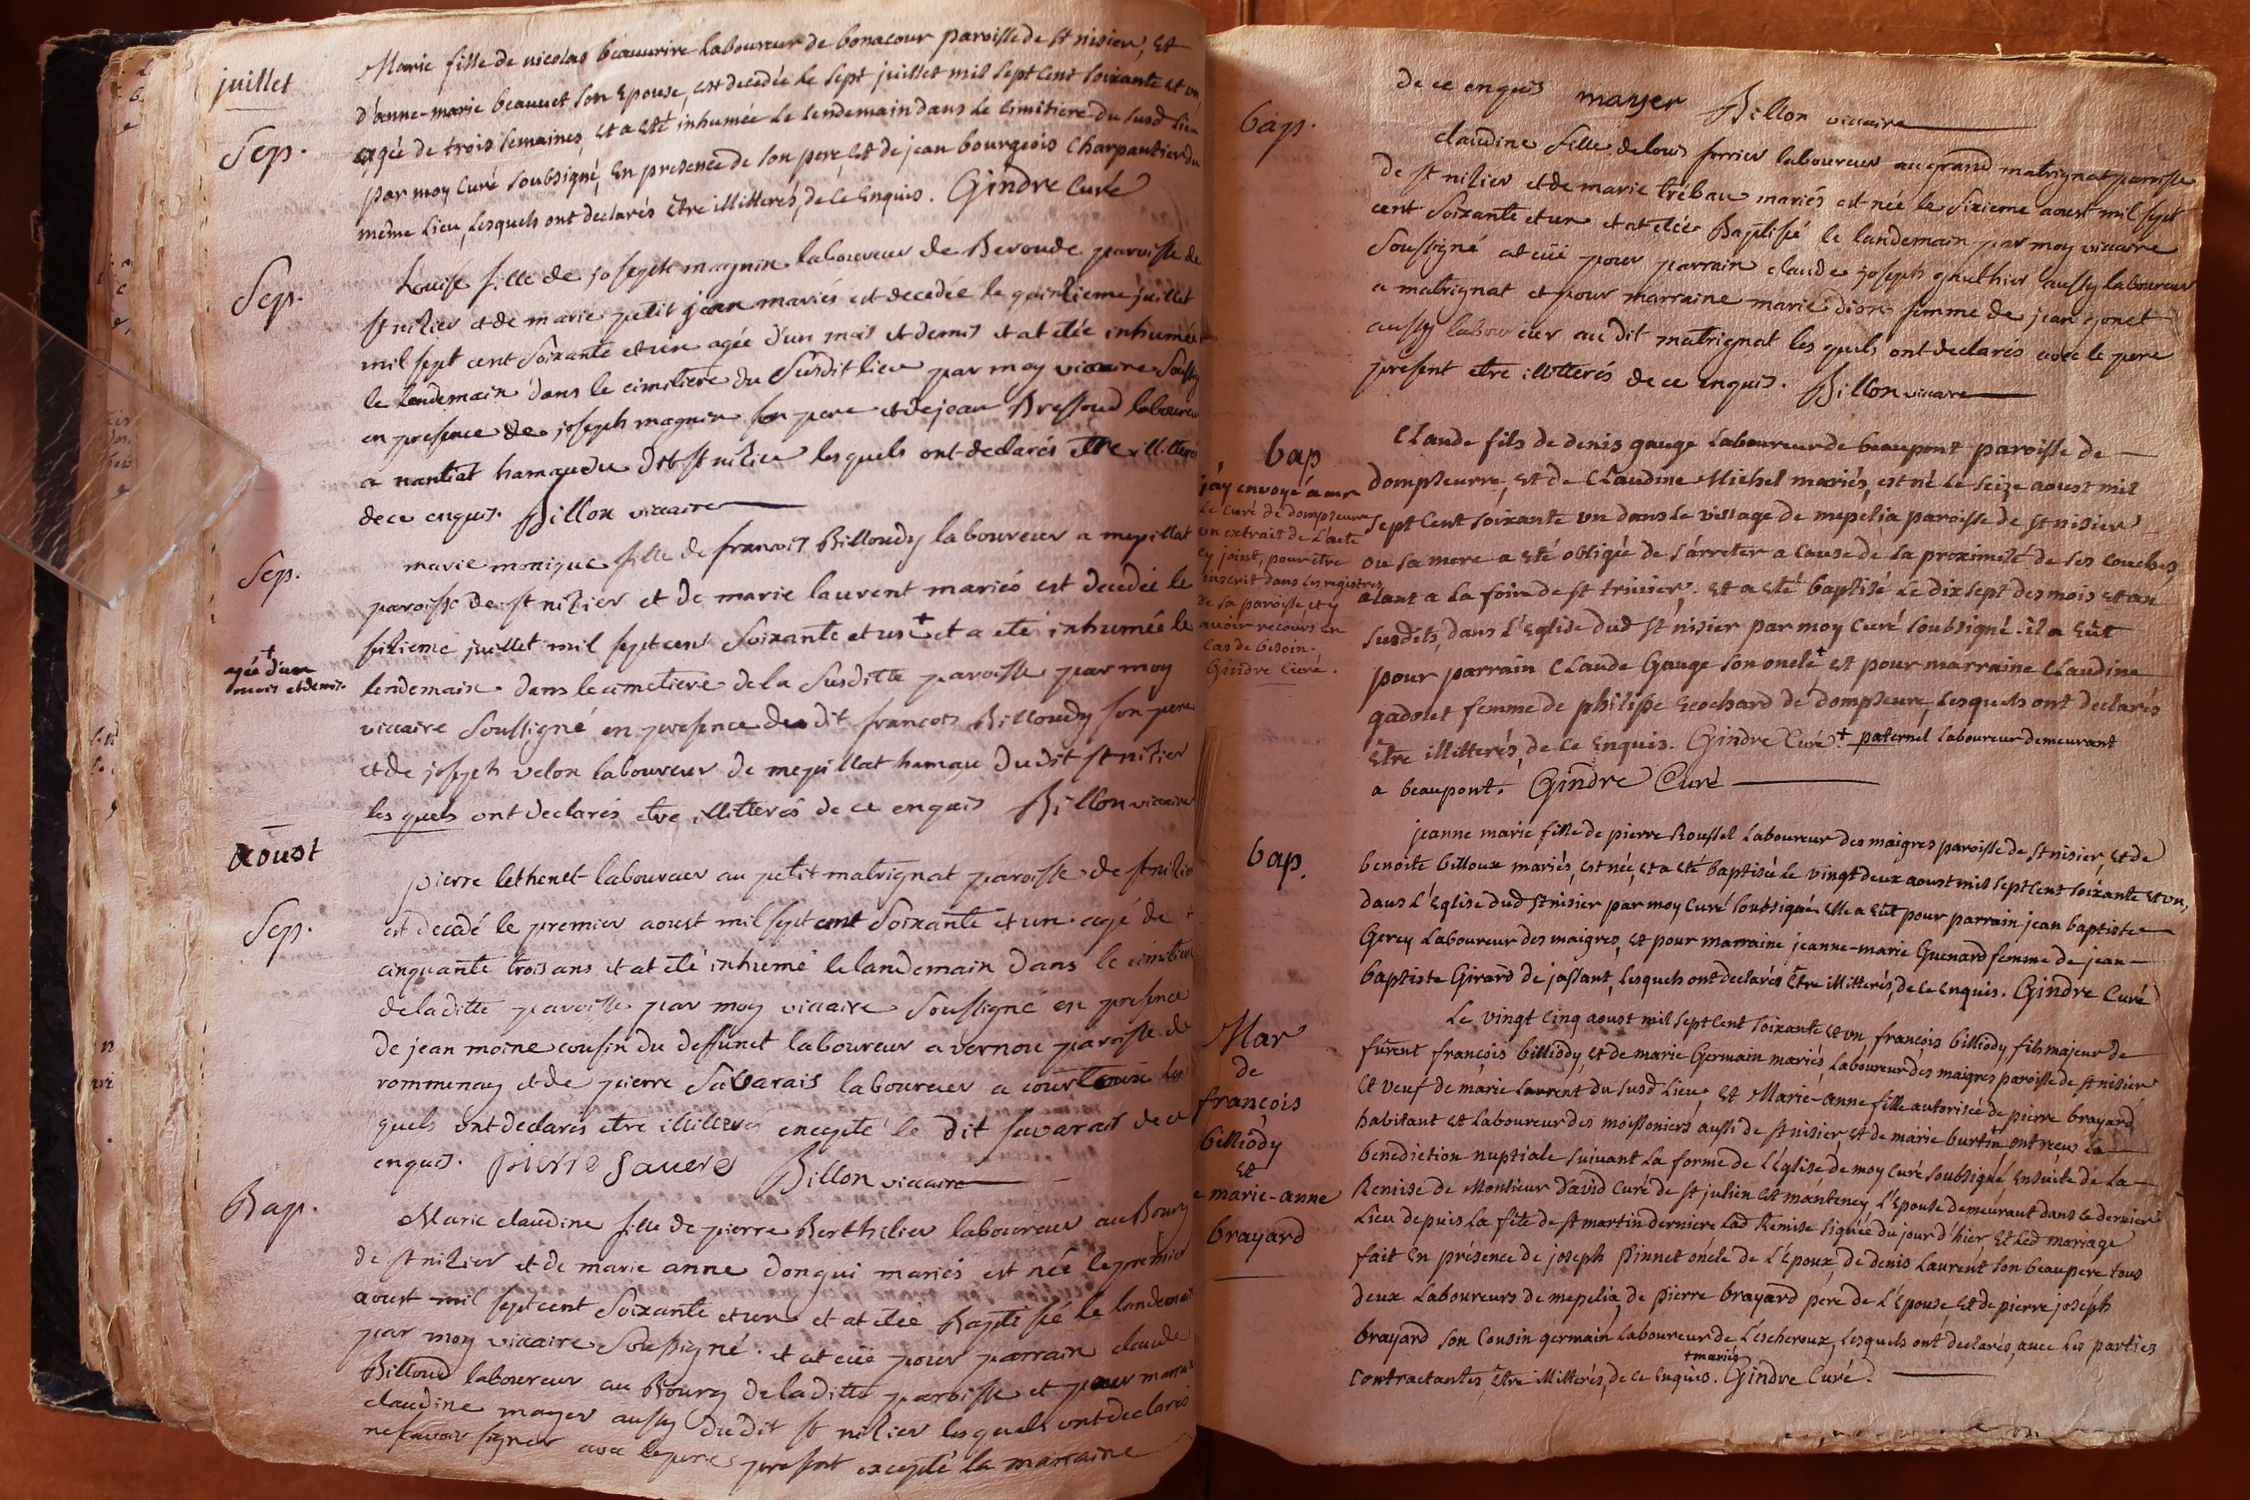 juillet
Sep.
Marie fille de nicolas beauvrire laboureur de bonacour paroisse de st nisier, Et
d'anne-marie beauvet son Epouse, est decedée le sept juillet mil sept cent soixante et un
agée de trois semaines, et a eté inhumée le lendemain dans le cimitiere du susd lieu
par moy Curé soubsigné, En presence de son pere, et de jean bourgeois Charpantier du
meme lieu, Lesquels ont declarés Etre illitterés, de Ce Enquis. Gindre Curé
Sep.
Louise fille de joseph magnin laboureur de Beroude paroisse de
st nizier et de marie petit jean mariés est decedée le quinzieme juillet
mil sept cent soixante et un agée d'un mois et demis et at etée inhumée
le lendemain dans le cimitiere du susdit lieu par moy vicaire soussig
en presence de joseph magnin son pere et de jean Bressoud laboureur
a nantiat hamau du dit st nizier lesquels ont declarés etre illitterés
de ce enquis. Billon viccaire
Sep.
marie monique fille de francois Billoudy laboureur a mepillat
paroisse de st nizier et de marie laurent mariés est decedée le
seizieme juillet mil sept cent soixante et un + et a eté inhumée le
+
agée d'un
mois et demis.
lendemain dans le cimetiere de la susditte paroisse par moy
viccaire soussigné en presence du dit francois Billoudy son pere
et de joseph velon laboureur de mepillat hamau du dit st nizier
les quels ont declarés etre illitterés de ce enquis Billon viccaire
aoust
Sep.
pierre lethenet laboureur au petit matrignat paroisse de st nizier
est decadé le premier aoust mil sept cent soixante et un agé de
cinquante trois ans et at été inhumé le landemain dans le cimitiere
de la ditte paroisse par moy viccaire soussigné en presence
de jean moine cousin du deffunct laboureur a vernou paroisse de
rommenay et de pierre savarais laboureur a les
quels ont declarés etre illitterés excepté le dit savarais de ce
enquis. pierre savere Billon viccaire
Bap.
Marie claudine fille de pierre Berthelier laboureur au Bourg
de st nizier et de marie anne donqui mariés est née le premier
aoust mil sept cent soixante et un et at etée Baptisé le landemain
par moy viccaire soussigné. et at eüe pour parrain claude
Billoud laboureur au Bourg de la ditte paroisse et pour marraine
claudine mayer aussy du dit st nizier les quels ont declarés
ne savoir signer avec le pere present excepté la marraine
de ce enquis mayer Billon viccaire
bap.
claudine fille de louis ferrier laboureur au grand matrignat paroisse
de st nizier et de marie trébau mariés est née le sixieme aoust mil sept
cent soixante et un et at etée Baptisé le landemain par moy viccaire
soussigné at eüe pour parrain claude joseph gauthier aussy laboureur
a matrignat et pour marraine marie dion femme de jean gonet
aussy laboureur au dit matrignat les quels ont declarés avec le pere
present etre illitterés de ce enquis. Billon viccaire
bap
j'ay envoyé a mr
Le Curé de dompsieure
un extrait de L'acte
cy joint, pour être
inscrit dans les registres
de sa paroisse, et y
avoir recours en
Cas de besoin.
Gindre Curé.
Claude fils de denis gauge Laboureur de beaupont paroisse de
dompseurre, et de Claudine Michel mariés, est né Le Seize aoust mil
sept Cent soixante un dans Le village de mepelia paroisse de st nisier
ou sa mere a eté obligée de s'arreter a Cause de la proximité de ses couches
alant a La foire de st trivier. et a eté baptisé Le dix sept des mois et an
susdits, dans L'Eglise dud st nisier par moy Curé soubsigné. il a Eût
pour parrain Claude Gauge son oncle + et pour marraine Claudine
gadolet femme de philipe ecochard de dompseure, Lesquels ont declarés
Etre illitterés, de Ce Enquis. Gindre Curé + paternel Laboureur demeurant
a beaupont. Gindre Curé
bap.
jeanne marie fille de pierre Roussel Laboureur des maigres paroisse de st nisier, et de
benoite billoux mariés, est née, et a eté baptisée le vingt deux aoust mil sept Cent soixante et un,
dans L'Eglise dud st nisier par moy Curé soubsigné. Elle a Eût pour parrain jean baptiste
Gerey Laboureur des maigres, et pour marraine jeanne-marie Guenard femme de jean
baptiste Girard de jassant, Lesquels ont declarés Etre illitterés, de Ce Enquis. Gindre Curé
Mar
de
françois
billiody
et
marie-anne
brayard
Le vingt Cinq aoust mil sept Cent soixante et un françois billiody fils majeur de
fûrent françois billiody, et de marie Germain mariés, Laboureur des maigres paroisse de st nisier
et veuf de marie Laurent du susd Lieu, et Marie-anne fille autorisée de pierre brayard
habitant et Laboureur des moissoniers aussi de st nisier, et de marie burtin + ont reçus la
benediction nuptiale suivant La forme de l'église de moy Curé soubsigné, Ensuite de La
Remise de Monsieur David Curé de st julien et manteney, L'Epouse demeurant dans Ce dernier
Lieu depuis La fête de st martin derniere Lad Remise signée du jour d'hier, et Led mariage
fait En présence de joseph Pinnet oncle de L'Epoux, de denis Laurent son beaupere tous
deux Laboureurs de mepelia, de pierre brayard pere de L'Epouse, et de pierre joseph
brayard son Cousin germain Laboureur de Lescheroux, Lesquels ont déclarés, avec Les parties
+ mariés
Contractantes, Etre illitterés, de Ce Enquis. Gindre Curé.